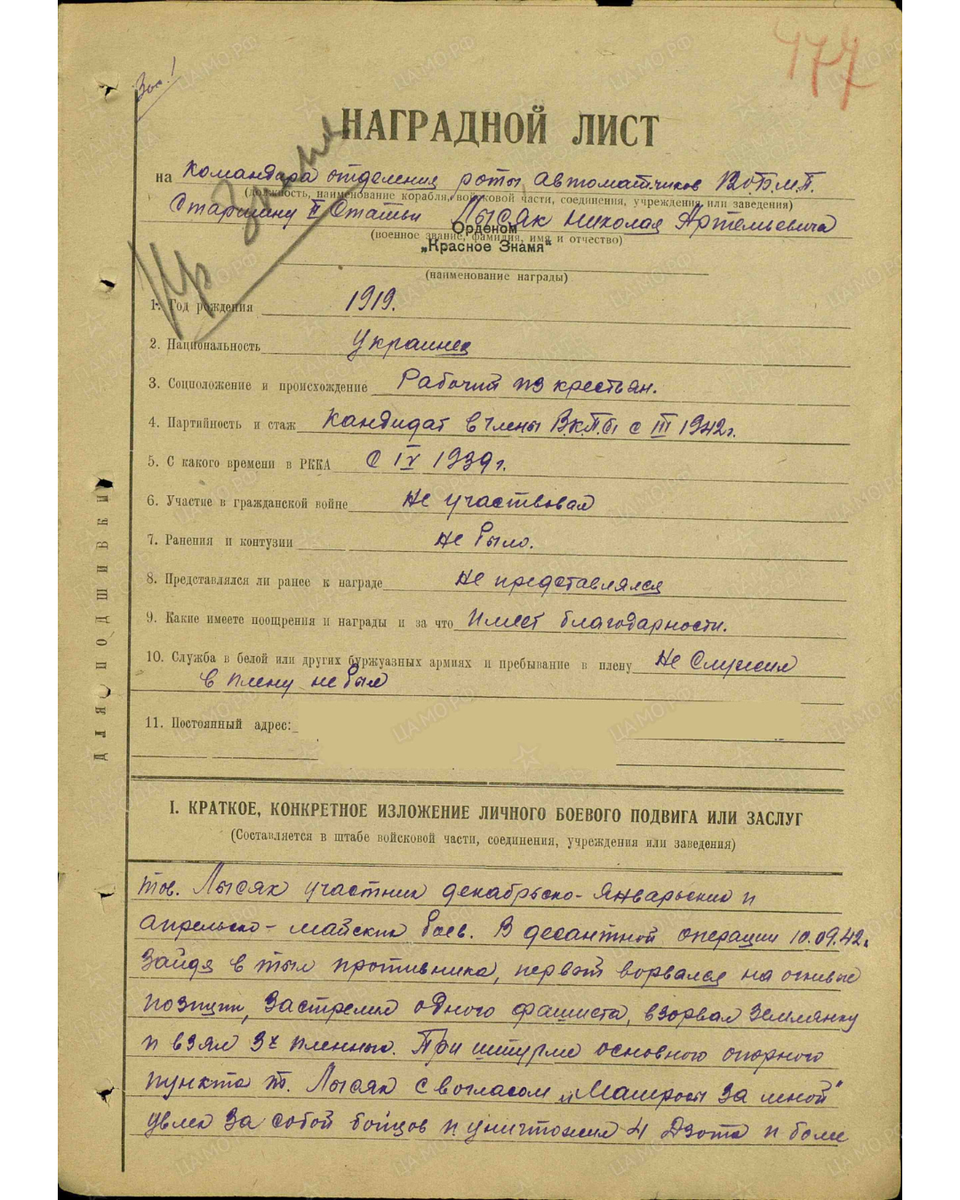 477
НАГРАДНОЙ ЛИСТ
на Командира отделения роты автоматчиков
(должность, наименование корабля, войсковой части, соединения, учреждения или заведения)
Старшину II Статьи Лысяк Николая Артемьевича
(военное звание, фамилия, имя и отчество)
Орденом
„Красное Знамя"
(наименование награды)
Кр Знамя
1. Год рождения 1919.
2. Национальность Украинец
3. Соцположение и происхождение Рабочий из крестьян.
4. Партийность и стаж Кандидат в члены ВКПб с III 1942г.
5. С какого времени в РККА С IX 1939г.
6. Участие в гражданской войне Не участвовал
7. Ранения и контузии Не было.
8. Представлялся ли ранее к награде Не представлялся
9. Какие имеете поощрения и награды и за что Имеет благодарности.
10. Служба в белой или других буржуазных армиях и пребывание в плену Не Служил
в плену не был
11. Постоянный адрес:
ДЛЯ ПОДШИВКИ
I. КРАТКОЕ, КОНКРЕТНОЕ ИЗЛОЖЕНИЕ ЛИЧНОГО БОЕВОГО ПОДВИГА ИЛИ ЗАСЛУГ
(Составляется в штабе войсковой части, соединения, учреждения или заведения)
тов. Лысяк участник декабрьско-Январьских и
апрельско-майских боев. В десантной операции 10.09.42г.
Зайдя в тыл противника, первый ворвался на огневые
позиции, застрелил одного фашиста, взорвал землянку
и взял 3х пленных. При штурме основного опорного
пункта т. Лысяк с возгласом „Матросы за мной"
увлек за собой бойцов и уничтожил 4 Дзота и более